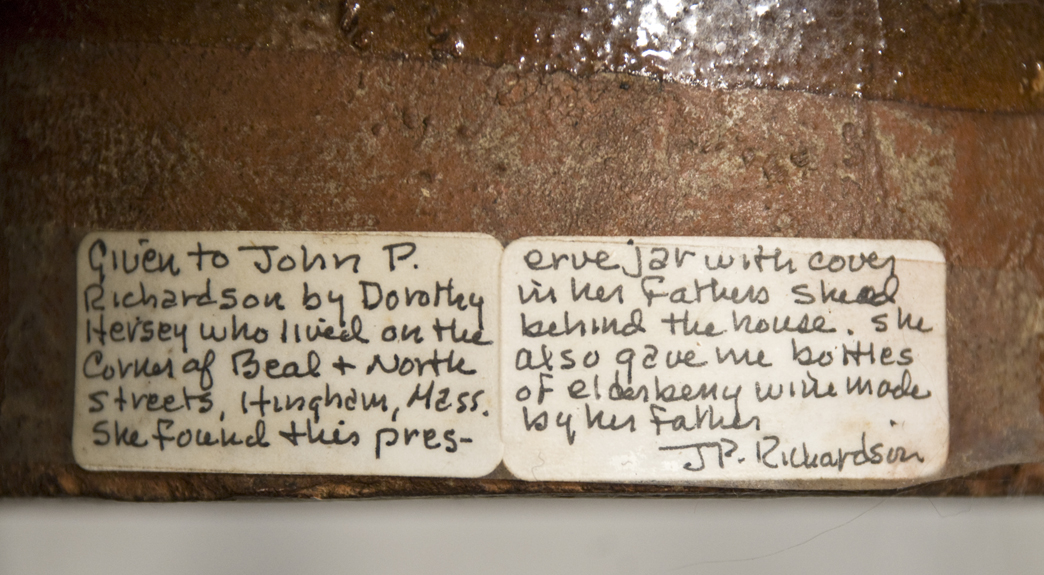 Given to John P.
Richardson by Dorothy
Hersey who lived on the
Corner of Beal + North
streets, Hingham, Mass.
She found this pres-
erve jar with cover
in her Fathers Shead
behind the house. She
also gave me bottles
of elderberry wine made
by her Father
JP. Richardson